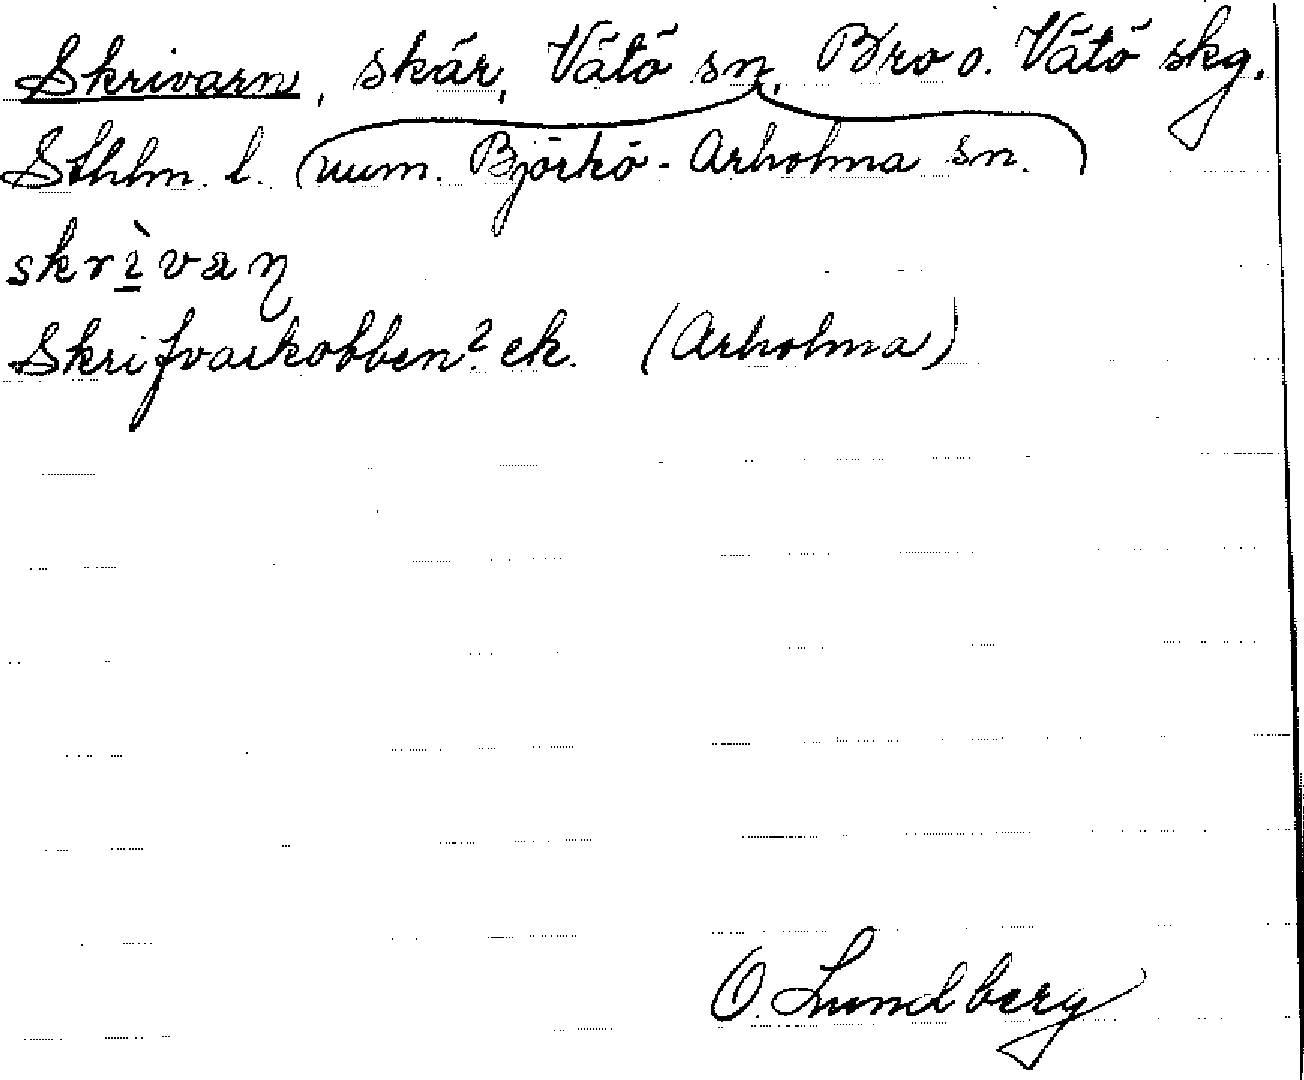 Skrivarn, skär, Vätö sn, Bro o. Vätö skg.
Sthlm. l. (num. Björkö-Arholma sn.)
skrìvaɳ
Skrifvarkobben? ek. (Arholma)
O. Lundberg